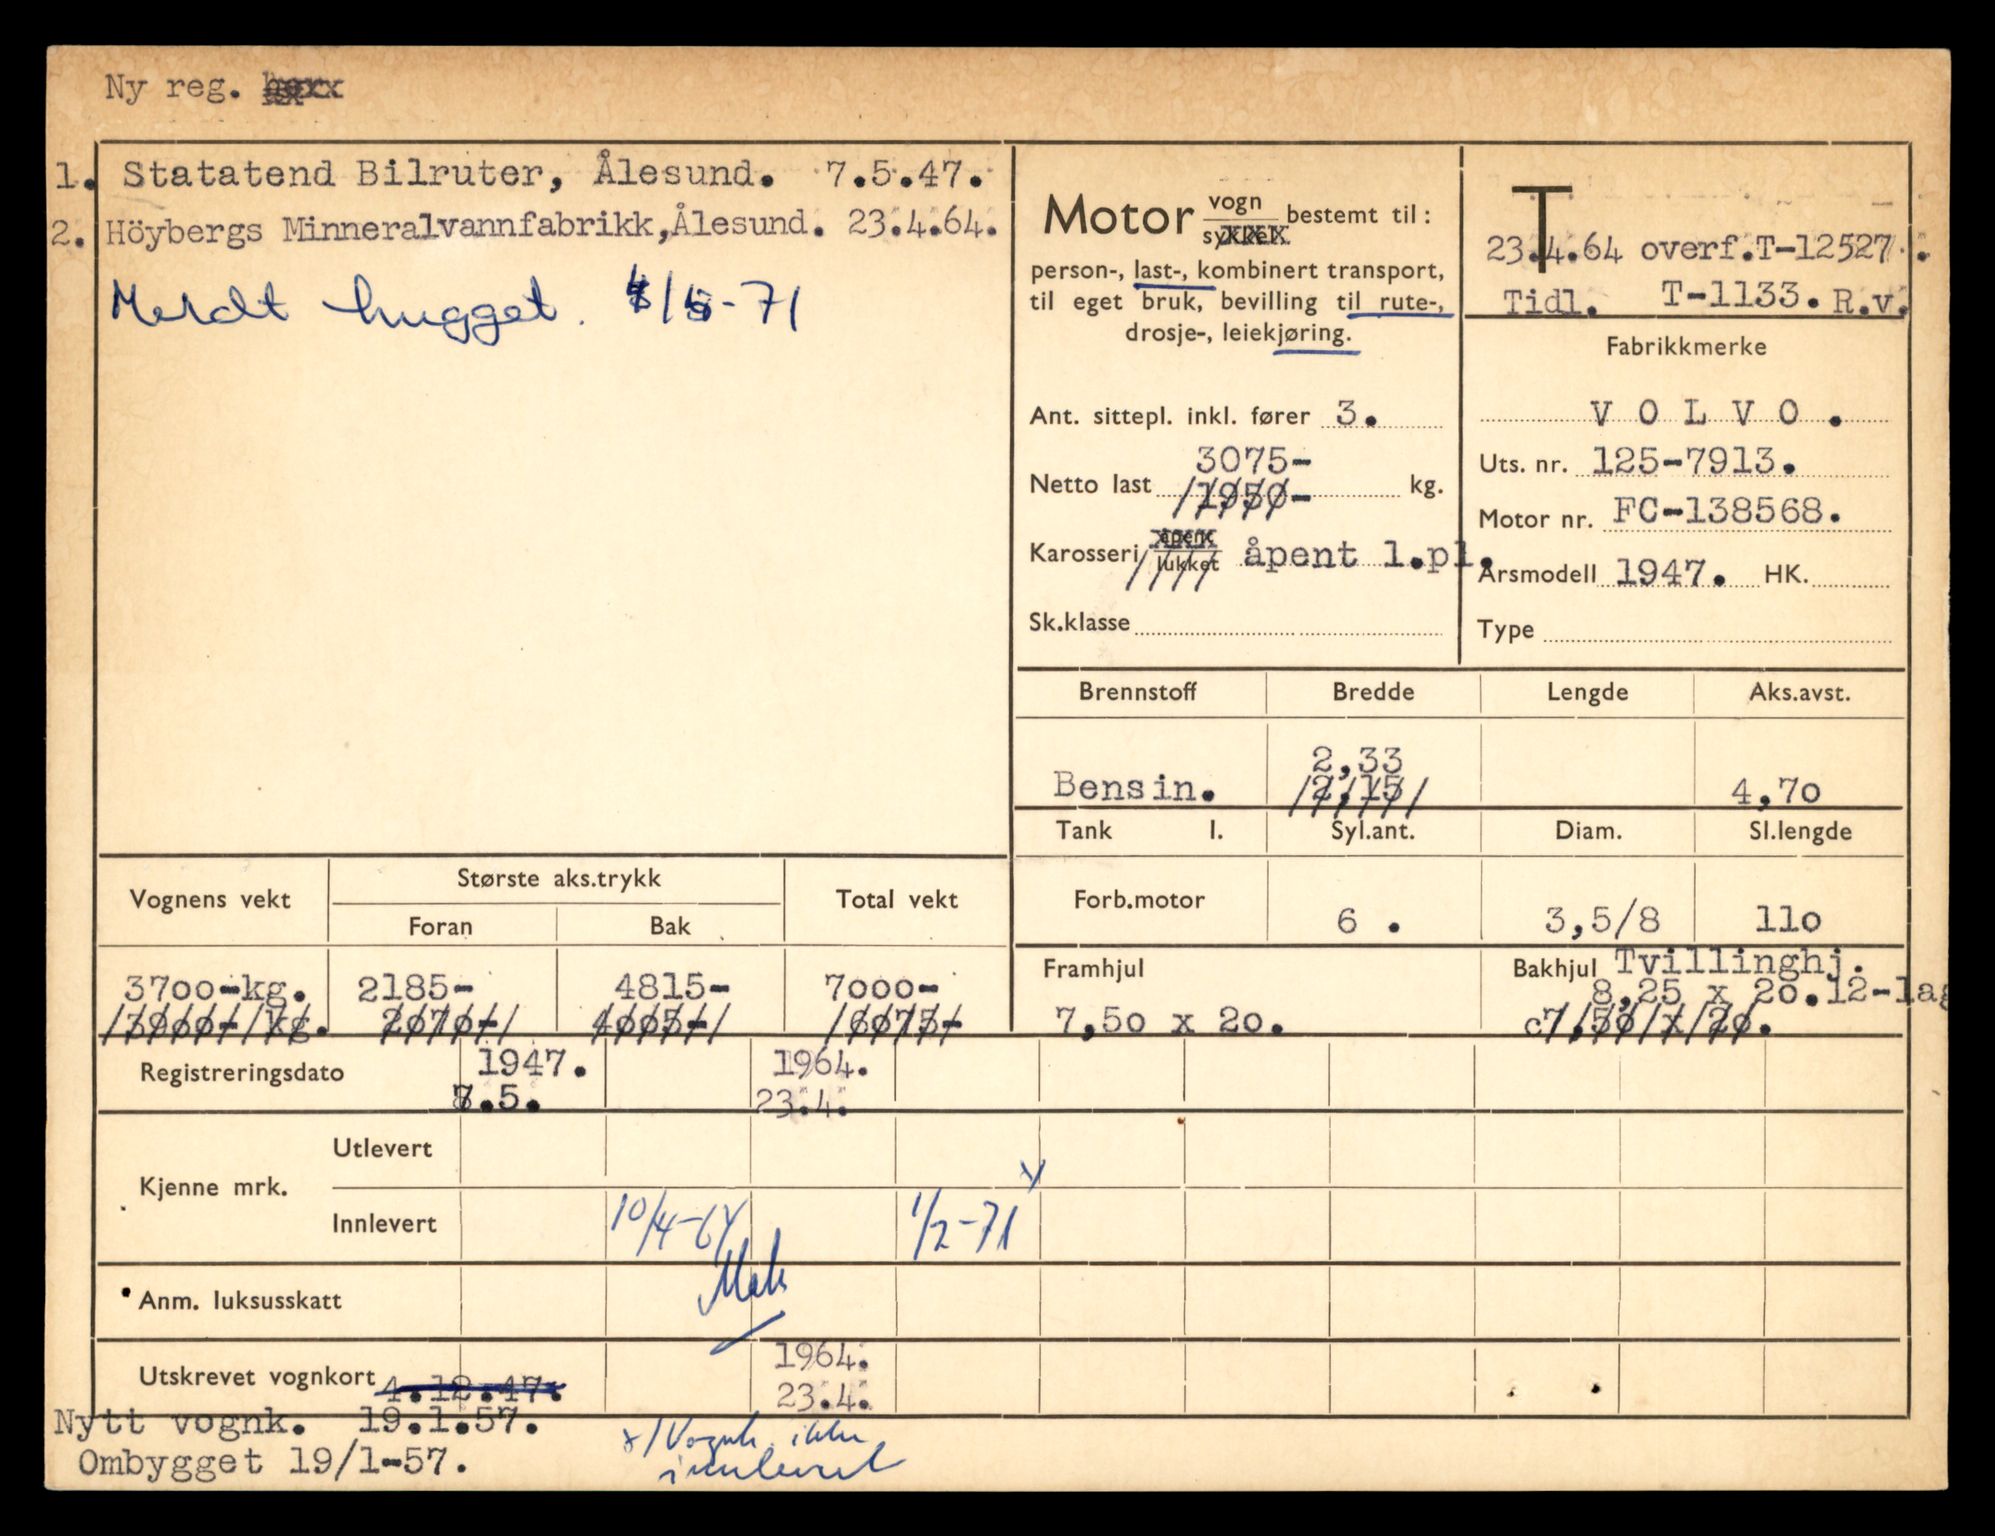 Ny reg.
1. Statatend Bilruter, Ålesund. 7.5.47.
2. Höybergs Minneralvannfabrikk, Ålesund. 23.4.64.
Meldt hugget. /5-71
Motor vogn bestemt til:
sykkel
person-, last-, kombinert transport,
til eget bruk, bevilling til rute-,
drosje-, leiekjøring.
Ant. sittepl. inkl. fører 3.
3075-
Netto last 1950- kg.
Karosseri åpent lukket åpent l.pl.
Sk.klasse
T
23.4.64 overf.T-12527.
Tidl. T-1133. R.v.
Fabrikkmerke
VOLVO.
Uts. nr. 125-7913.
Motor nr. FC-138568.
Årsmodell 1947. HK.
Type
Brennstoff Bredde Lengde Aks.avst.
2,33
Bensin. 2.15 4,70
Tank l. Syl.ant. Diam. Sl.lengde
Forb.motor 6 . 3,5/8 110
Framhjul Bakhjul Tvillinghj.
8,25 x 20.12-lag
7,50 x 20. c7,50 x 20.
Vognens vekt Største aks.trykk Total vekt
Foran Bak
3700-kg. 2185- 4815- 7000-
2070- 4005- 6075-
Registreringsdato 1947. 1964.
.5. 23.4.
Kjenne mrk. Utlevert
Innlevert 10/4-64 1/2-71 x
Anm. luksusskatt
Utskrevet vognkort 4.12.47. 1964.
23.4.
Nytt vognk. 19.1.57.
Ombygget 19/1-57.
x/Vognk. ikke
innlevert